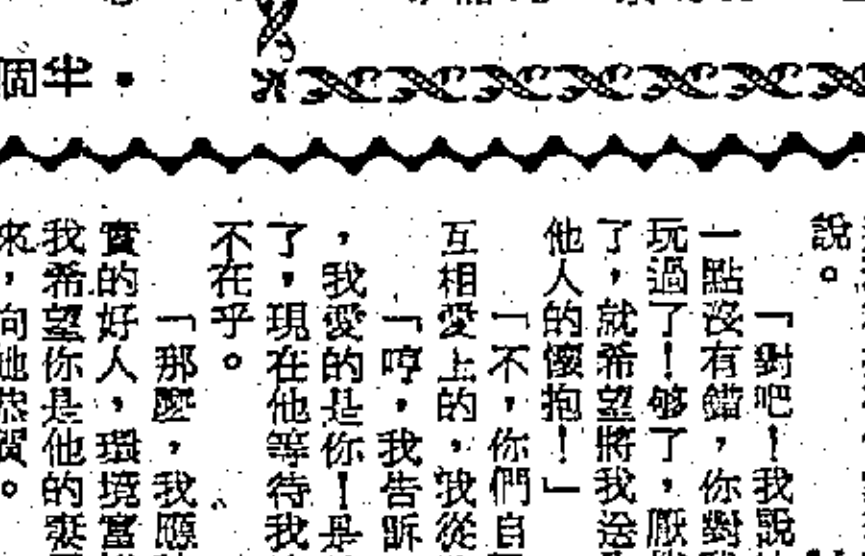 說。
「對吧！我說
一點沒有錯，你對
玩過了！够了，厭
了，就希望將我送
他人的懷抱！」
「不，你們自
互相愛上的，我從
「哼，我告訴
，我愛的是你！是
了，現在他等待我
不在乎。
「那麼，我應
實的好人，環境富
我希望你是他的妻
來，向她恭賀。
半個